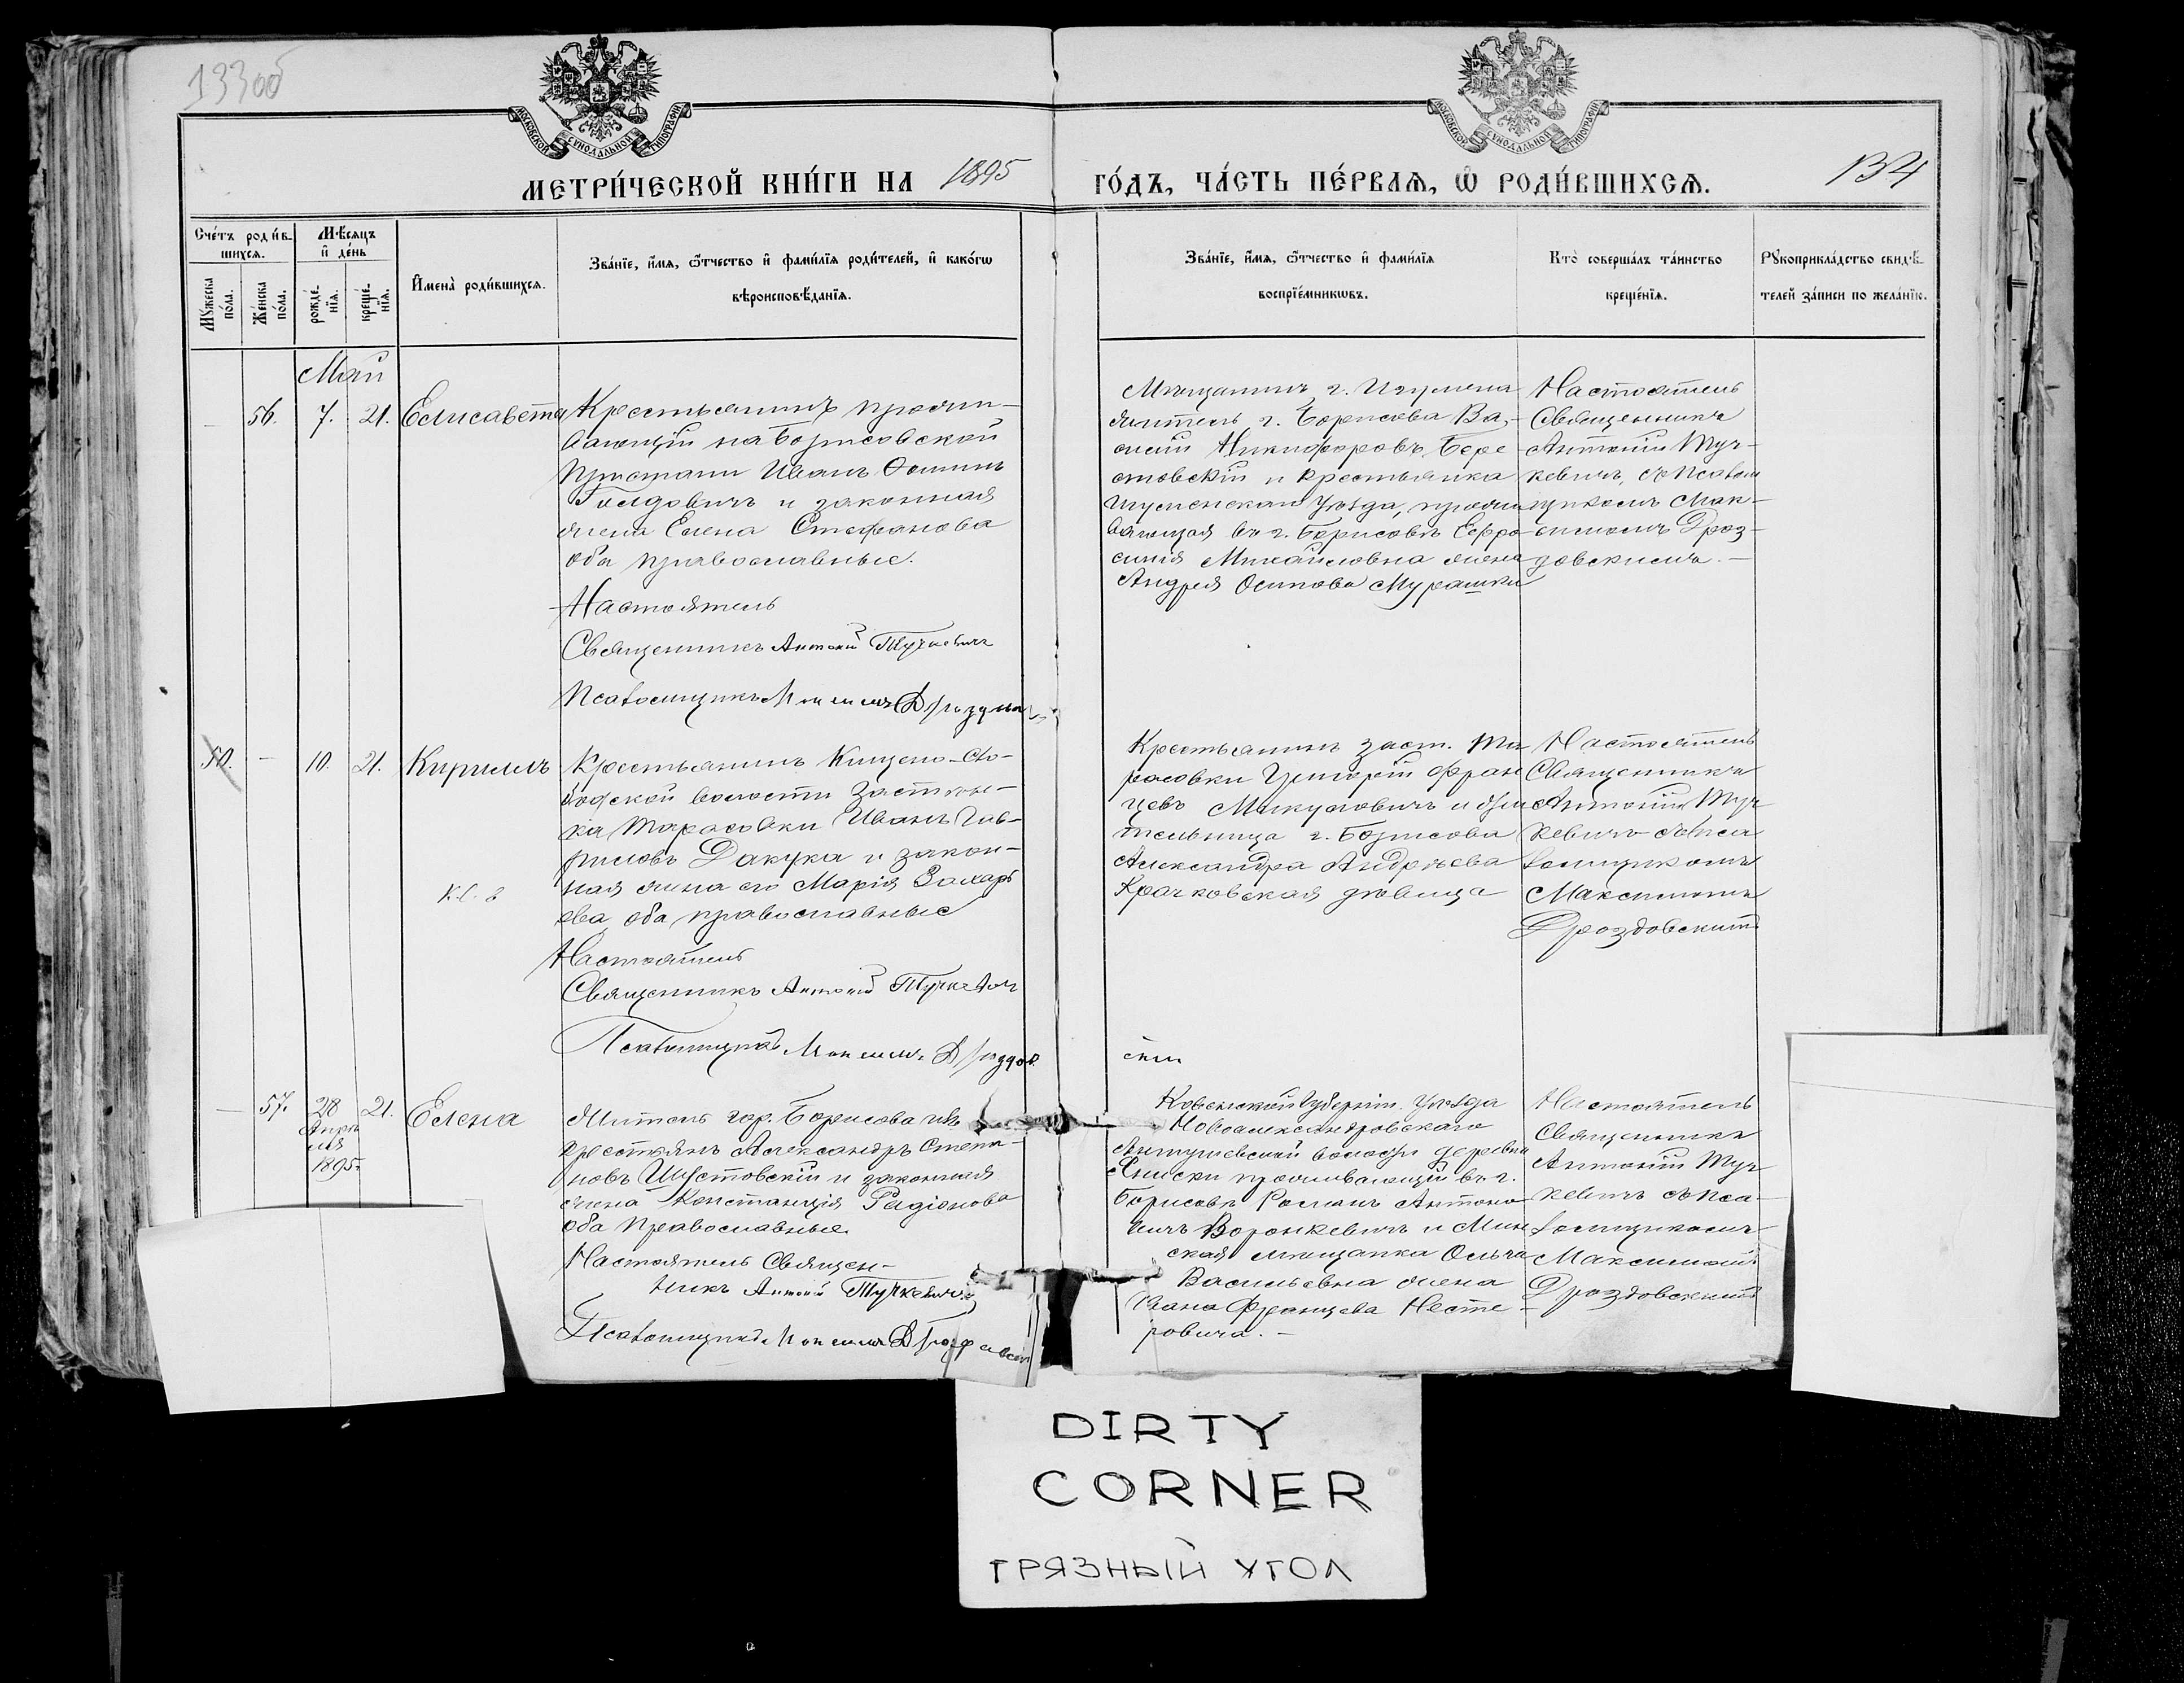 133об
МОСКОВСКОЙ СѴНОДАЛЬНОЙ ТИПОГРАФІИ
МОСКОВСКОЙ СѴНОДАЛЬНОЙ ТИПОГРАФІИ
МЕТРИ́ЧЕСКОЙ КНИ́ГИ НА 1895 ГО́ДЪ, ЧА́СТЬ ПЕ́РВАѦ, Ѡ҆ РОДИ́ВШИХСѦ.
134
Сче́тъ роди́в-
шихсѧ.
Мѣ́сѧцъ
и҆ де́нь
Мꙋ́жеска
по́ла.
Же́нска
по́ла.
рожде́-
нїѧ.
креще́-
нїѧ.
И҆мена̀ роди́вшихсѧ.
Зва́нїе, и҆́мѧ, ѻ҆́тчество и҆ фами́лїѧ роди́телей, и҆ како́гѡ
вѣроисповѣ́данїѧ.
Зва́нїе, и҆́мѧ, ѻ҆́тчество и҆ фами́лїѧ
воспрїе́мникѡвъ.
Кто̀ соверша́лъ та́инство
креще́нїѧ.
Рꙋкоприкла́дство свидѣ́-
телей за́писи по жела́нїю.
Май
56. 7. 21. Елисавета
Крестьянинъ прожи-
вающій на Борисовской
пристани Иванъ Фоминъ
Гилдовичъ и законная
жена Елена Стефанова
оба православные.
Настоятель
Священникъ Антоній Тучкевичъ
Псаломщикъ Максимъ
Мѣщанинъ г. Игумена
житель г. Борисова Ва-
силій Никифоровъ Бере-
стовскій и крестьянка
Игуменскаго уѣзда, прожи-
вающая въ г. Борисовѣ Ефро-
синія Михайловна жена
Андрея Осипова Мурашки
Настоятель
Священникъ
Антоній Туч-
кевичъ, съ Псалом-
щикомъ Мак-
симомъ Дроз-
довскимъ.
50. - 10. 21. Кириллъ
Крестьянинъ Кищено-Сло-
бодской волости застѣн-
ка Тарасовки Иванъ Гав-
риловъ Дакука и закон-
ная жена его Марія Захарь-
ева, оба православные
Настоятель
Священникъ Антоній Тучкевичъ
Псаломщикъ Максимъ Дроздов-
скій
Крестьянинъ заст. Та-
расовки Григорій Фран-
цевъ Микуловичъ и жи-
тельница г. Борисова
Александра Андреева
Крачковская дѣвица
Настоятель
Священникъ
Антоній Туч-
кевичъ съ Пса-
ломщикомъ
Максимомъ
Дроздовскимъ
- 57. 28 21. Елена
Апрѣ-
ля
1895.
Житель гор. Борисова изъ
крестьянъ Александръ Степа-
новъ Шустовскій и законная
жена Констанція Радіонова
оба православные.
Настоятель Священ-
никъ Антоній Тучкевичъ
Псаломщикъ Максимъ
Ковенской Губерніи уѣзда
Новоалександровскаго
волости деревни
проживающій въ г.
Борисовѣ Романъ Антоно-
вичъ Воронкевичъ и Мин-
ская мѣщанка Ольга
Васильевна жена
Ивана Францева Несте-
ровича.
Настоятель
Священникъ
Антоній Туч-
кевичъ съ Пса-
ломщикомъ
Максимомъ
Дроздовскимъ
DIRTY
CORNER
ГРЯЗНЫЙ УГОЛ